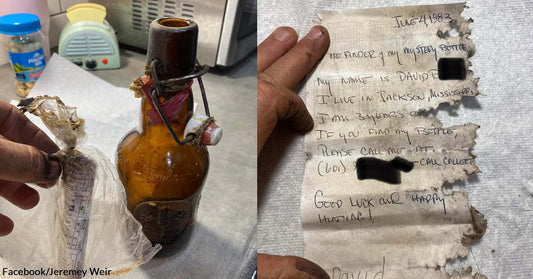 JUNE 4, 1983
THE FINDER of my MYSTERY BOTTLE,
MY NAME IS DAVID
I LIVE IN JACKSON, MISSISSIPPI
I'M 3 years
IF YOU FIND MY BOTTLE,
PLEASE CALL ME AT
(601) - CALL COLLECT
GOOD LUCK and HAPPY
HUNTING!
David
Facebook/Jeremey Weir